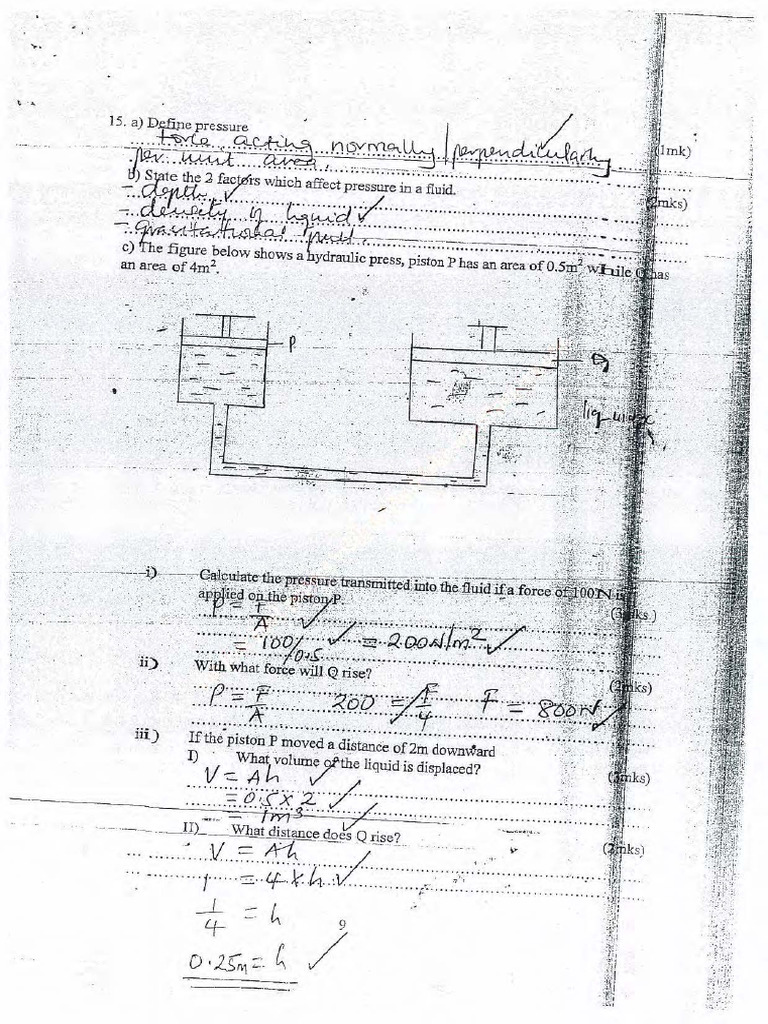 15. a) Define pressure
force acting normally/perpendicularly (1mk)
per unit area.
b) State the 2 factors which affect pressure in a fluid.
- depth ✓ (2mks)
- density of liquid ✓
- gravitational
c) The figure below shows a hydraulic press, piston P has an area of 0.5m² while Q has
an area of 4m².
P
Q
i) Calculate the pressure transmitted into the fluid if a force of 100N is
applied on the piston P. (3mks)
P = F/A ✓
= 100/0.5 ✓ = 200N/m² ✓
ii) With what force will Q rise? (2mks)
P = F/A 200 = F/4 F = 800N ✓
iii) If the piston P moved a distance of 2m downward
I) What volume of the liquid is displaced? (3mks)
V = Ah ✓
= 0.5 x 2 ✓
= 1m³ ✓
II) What distance does Q rise? (2mks)
V = Ah
1 = 4 x h ✓
1/4 = h
9
0.25m = h ✓